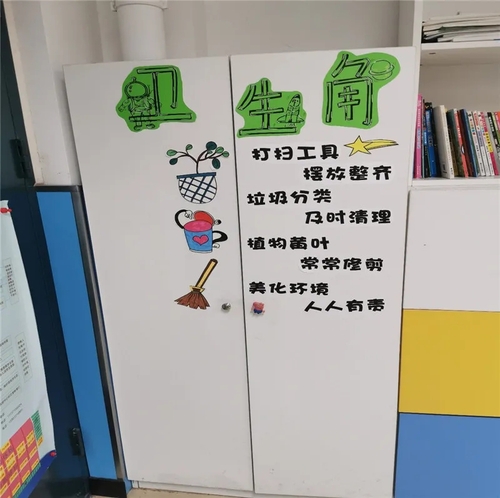 卫生角
打扫工具
摆放整齐
垃圾分类
及时清理
植物黄叶
常常修剪
美化环境
人人有责